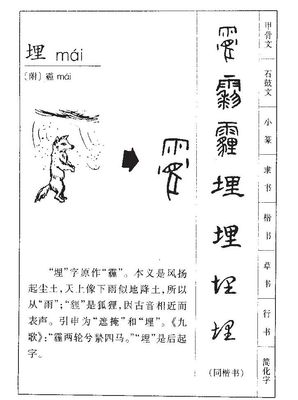 埋 mái
〔附〕霾 mái
“埋”字原作“霾”。本义是风扬
起尘土，天上像下雨似地降土，所以
从“雨”；“貍”是狐狸，因古音相近而
表声。引申为“遮掩”和“埋”。《九
歌》：“霾两轮兮絷四马。”“埋”是后起
字。
霾
霾
霾
埋
埋
埋
埋
（同楷书）
甲骨文
石鼓文
小篆
隶书
楷书
草书
行书
简化字